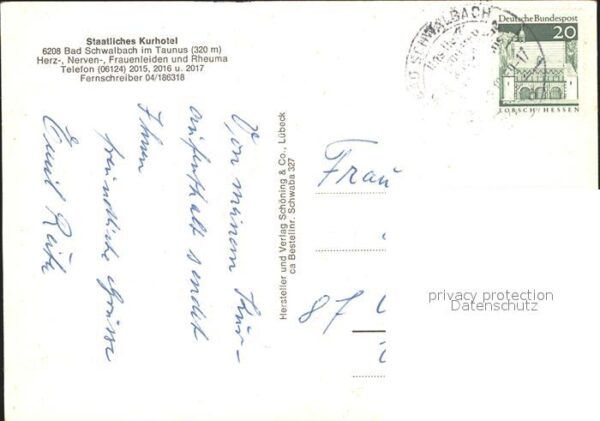 Staatliches Kurhotel
6208 Bad Schwalbach im Taunus (320 m)
Herz-, Nerven-, Frauenleiden und Rheuma
Telefon (06124) 2015, 2016 u. 2017
Fernschreiber 04/186318
Von meinem Kur-
aufenthalt sendet
Ihnen
freundliche Grüsse
Emil
Hersteller und Verlag Schöning & Co., Lübeck
ca Bestellnr. Schwaba 327
BAD SCHWALBACH
Deutsche Bundespost
20
LORSCH/HESSEN
Frau
87
privacy protection
Datenschutz